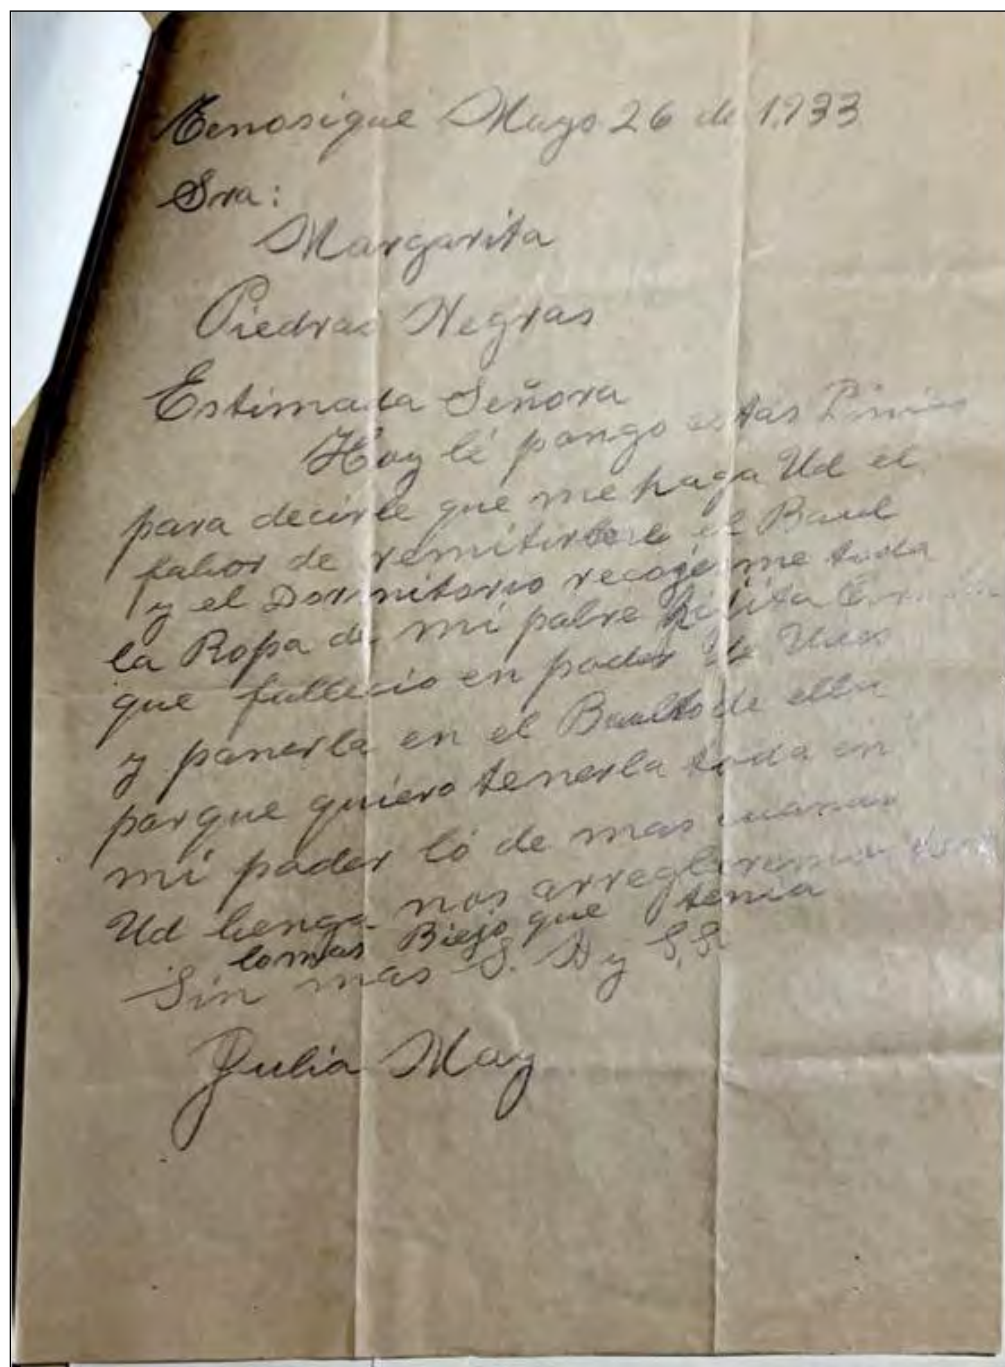 Tenosique Mayo 26 de 1,933
Sra:
Margarita
Piedras Negras
Estimada Señora
Hoy lé pongo estas
para decirle que me haga Ud el
fabor de el Baul
y el Dormitorio recojé me toda
la Ropa de mi pobre hijita
que fallecio en poder de Udes
y ponerla en el de ella
porque quiero tenerla toda en
mi poder ló de mas
Ud benga nos arreglaremos
lomas Biejo que tenia
Sin mas S. A y S,S
Julia May